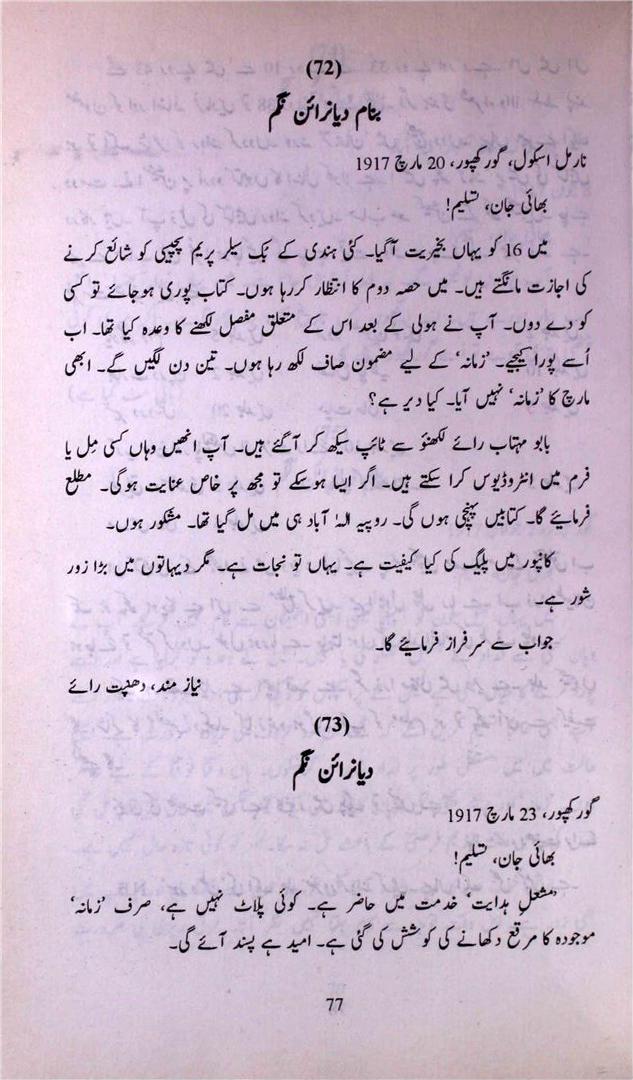 (72)
بنام دیانرائن نگم
نارمل اسکول، گورکھپور، 20 مارچ 1917
بھائی جان، تسلیم!
میں 16 کو یہاں بخیریت آگیا۔ کئی ہندی کے بُک سیلر پریم پچیسی کو شائع کرنے
کی اجازت مانگتے ہیں۔ میں حصہ دوم کا انتظار کررہا ہوں۔ کتاب پوری ہوجائے تو کسی
کو دے دوں۔ آپ نے ہولی کے بعد اس کے متعلق مفصل لکھنے کا وعدہ کیا تھا۔ اب
اُسے پورا کیجیے۔ ’زمانہ‘ کے لیے مضمون صاف لکھ رہا ہوں۔ تین دن لگیں گے۔ ابھی
مارچ کا ’زمانہ‘ نہیں آیا۔ کیا دیر ہے؟
بابو مہتاب رائے لکھنؤ سے ٹائپ سیکھ کر آگئے ہیں۔ آپ انھیں وہاں کسی مِل یا
فرم میں انٹروڈیوس کرا سکتے ہیں۔ اگر ایسا ہوسکے تو مجھ پر خاص عنایت ہوگی۔ مطلع
فرمائیے گا۔ کتابیں پہنچی ہوں گی۔ روپیہ الہٰ آباد ہی میں مل گیا تھا۔ مشکور ہوں۔
کانپور میں پلیگ کی کیا کیفیت ہے۔ یہاں تو نجات ہے۔ مگر دیہاتوں میں بڑا زور
شور ہے۔
جواب سے سرفراز فرمائیے گا۔
نیاز مند، دھنپت رائے
(73)
دیانرائن نگم
گورکھپور، 23 مارچ 1917
بھائی جان، تسلیم!
’مشعلِ ہدایت‘ خدمت میں حاضر ہے۔ کوئی پلاٹ نہیں ہے، صرف ’زمانہ‘
موجودہ کا مرقع دکھانے کی کوشش کی گئی ہے۔ امید ہے پسند آئے گی۔
77